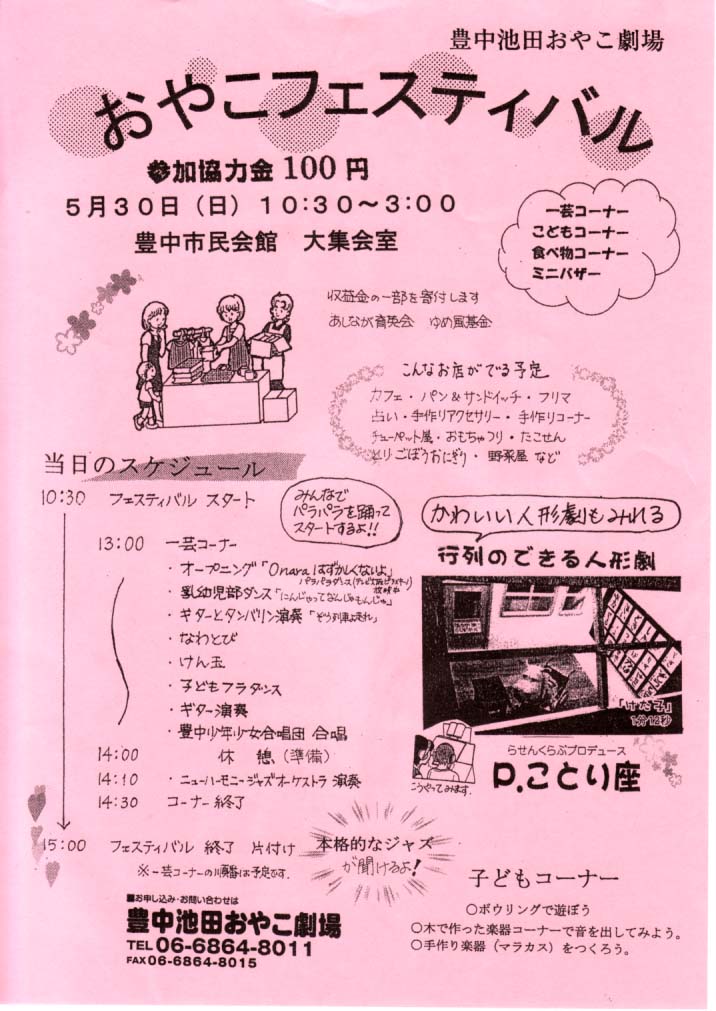 豊中池田おやこ劇場
おやこフェスティバル
参加協力金 100 円
5月30日（日）10:30〜3:00
豊中市民会館　大集会室
一芸コーナー
こどもコーナー
食べ物コーナー
ミニバザー
収益金の一部を寄付します
あしなが育英会　ゆめ風基金
こんなお店がでる予定
カフェ・パン&サンドイッチ・フリマ
占い・手作りアクセサリー・手作りコーナー
チューペット屋・おもちゃつり・たこせん
とりごぼうおにぎり・野菜屋 など
当日のスケジュール
10:30 フェスティバル スタート
みんなで
パラパラを踊って
スタートするよ!!
13:00 一芸コーナー
・オープニング「Onaraはずかしくないよ」
パラパラダンス
・乳幼児部ダンス「にんじゃってなんじゃもんじゃ」
・ギターとタンバリン演奏「ぞう列車よ走れ」
・なわとび
・けん玉
・子どもフラダンス
・ギター演奏
・豊中少年少女合唱団 合唱
14:00 休憩（準備）
14:10 ・ニューハーモニージャズオーケストラ 演奏
14:30 コーナー終了
15:00 フェスティバル 終了 片付け
※一芸コーナーの順番は予定です.
本格的なジャズ
が聞けるよ!
かわいい人形劇もみれる
行列のできる人形劇
「げた子」
1分12秒
らせんくらぶプロデュース
P.ことり座
こうやってみます.
子どもコーナー
○ボウリングで遊ぼう
○木で作った楽器コーナーで音を出してみよう。
○手作り楽器（マラカス）をつくろう。
■お申し込み・お問い合わせは
豊中池田おやこ劇場
TEL 06-6864-8011
FAX 06-6864-8015